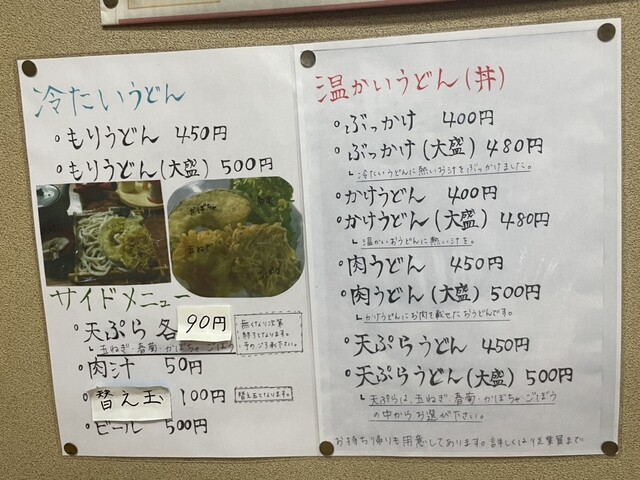 冷たいうどん
・もりうどん 450円
・もりうどん(大盛) 500円
かぼちゃ
玉ねぎ
サイドメニュー
・天ぷら 各 90円
└玉ねぎ・春菊・かぼちゃ・ごぼう
無くなり次第
終了となります。
予めご了承ください。
・肉汁 50円
替え玉 100円
替え玉となります。
・ビール 500円
温かいうどん(丼)
・ぶっかけ 400円
・ぶっかけ(大盛) 480円
└冷たいうどんに熱いお汁をぶっかけました。
・かけうどん 400円
・かけうどん(大盛) 480円
└温かいおうどんに熱い汁を。
・肉うどん 450円
・肉うどん(大盛) 500円
└かけうどんにお肉を載せたおうどんです。
・天ぷらうどん 450円
・天ぷらうどん(大盛) 500円
└天ぷらは、玉ねぎ・春菊・かぼちゃ・ごぼう
の中からお選び下さい。
お持ち帰りも用意してあります。詳しくは従業員まで